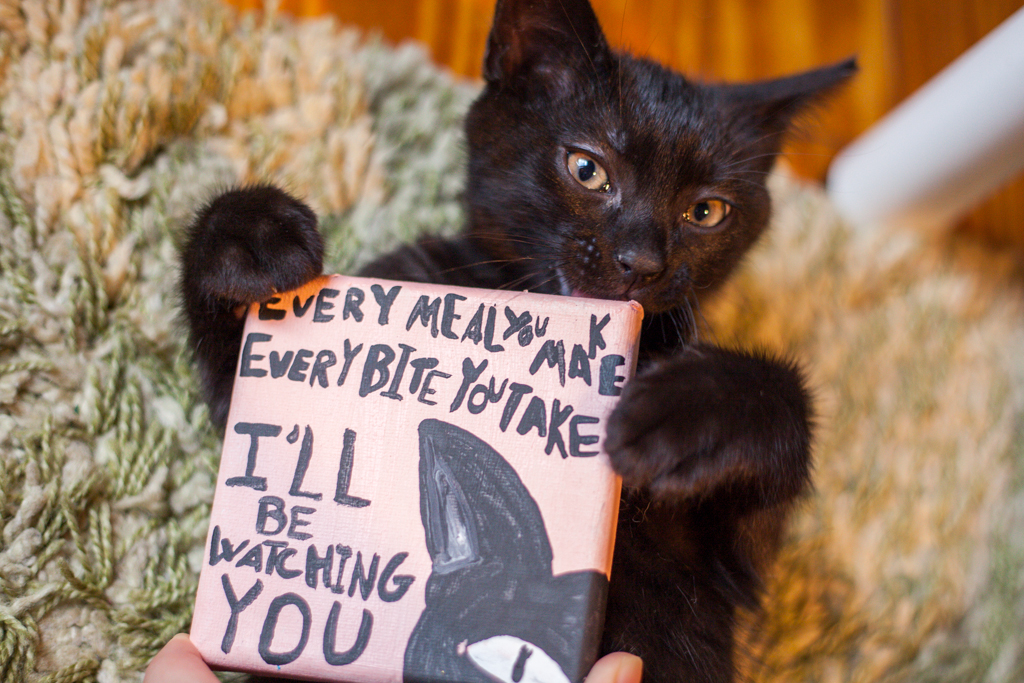 EVERY MEAL YOU MAKE
EVERY BITE YOU TAKE
I'LL
BE
WATCHING
YOU